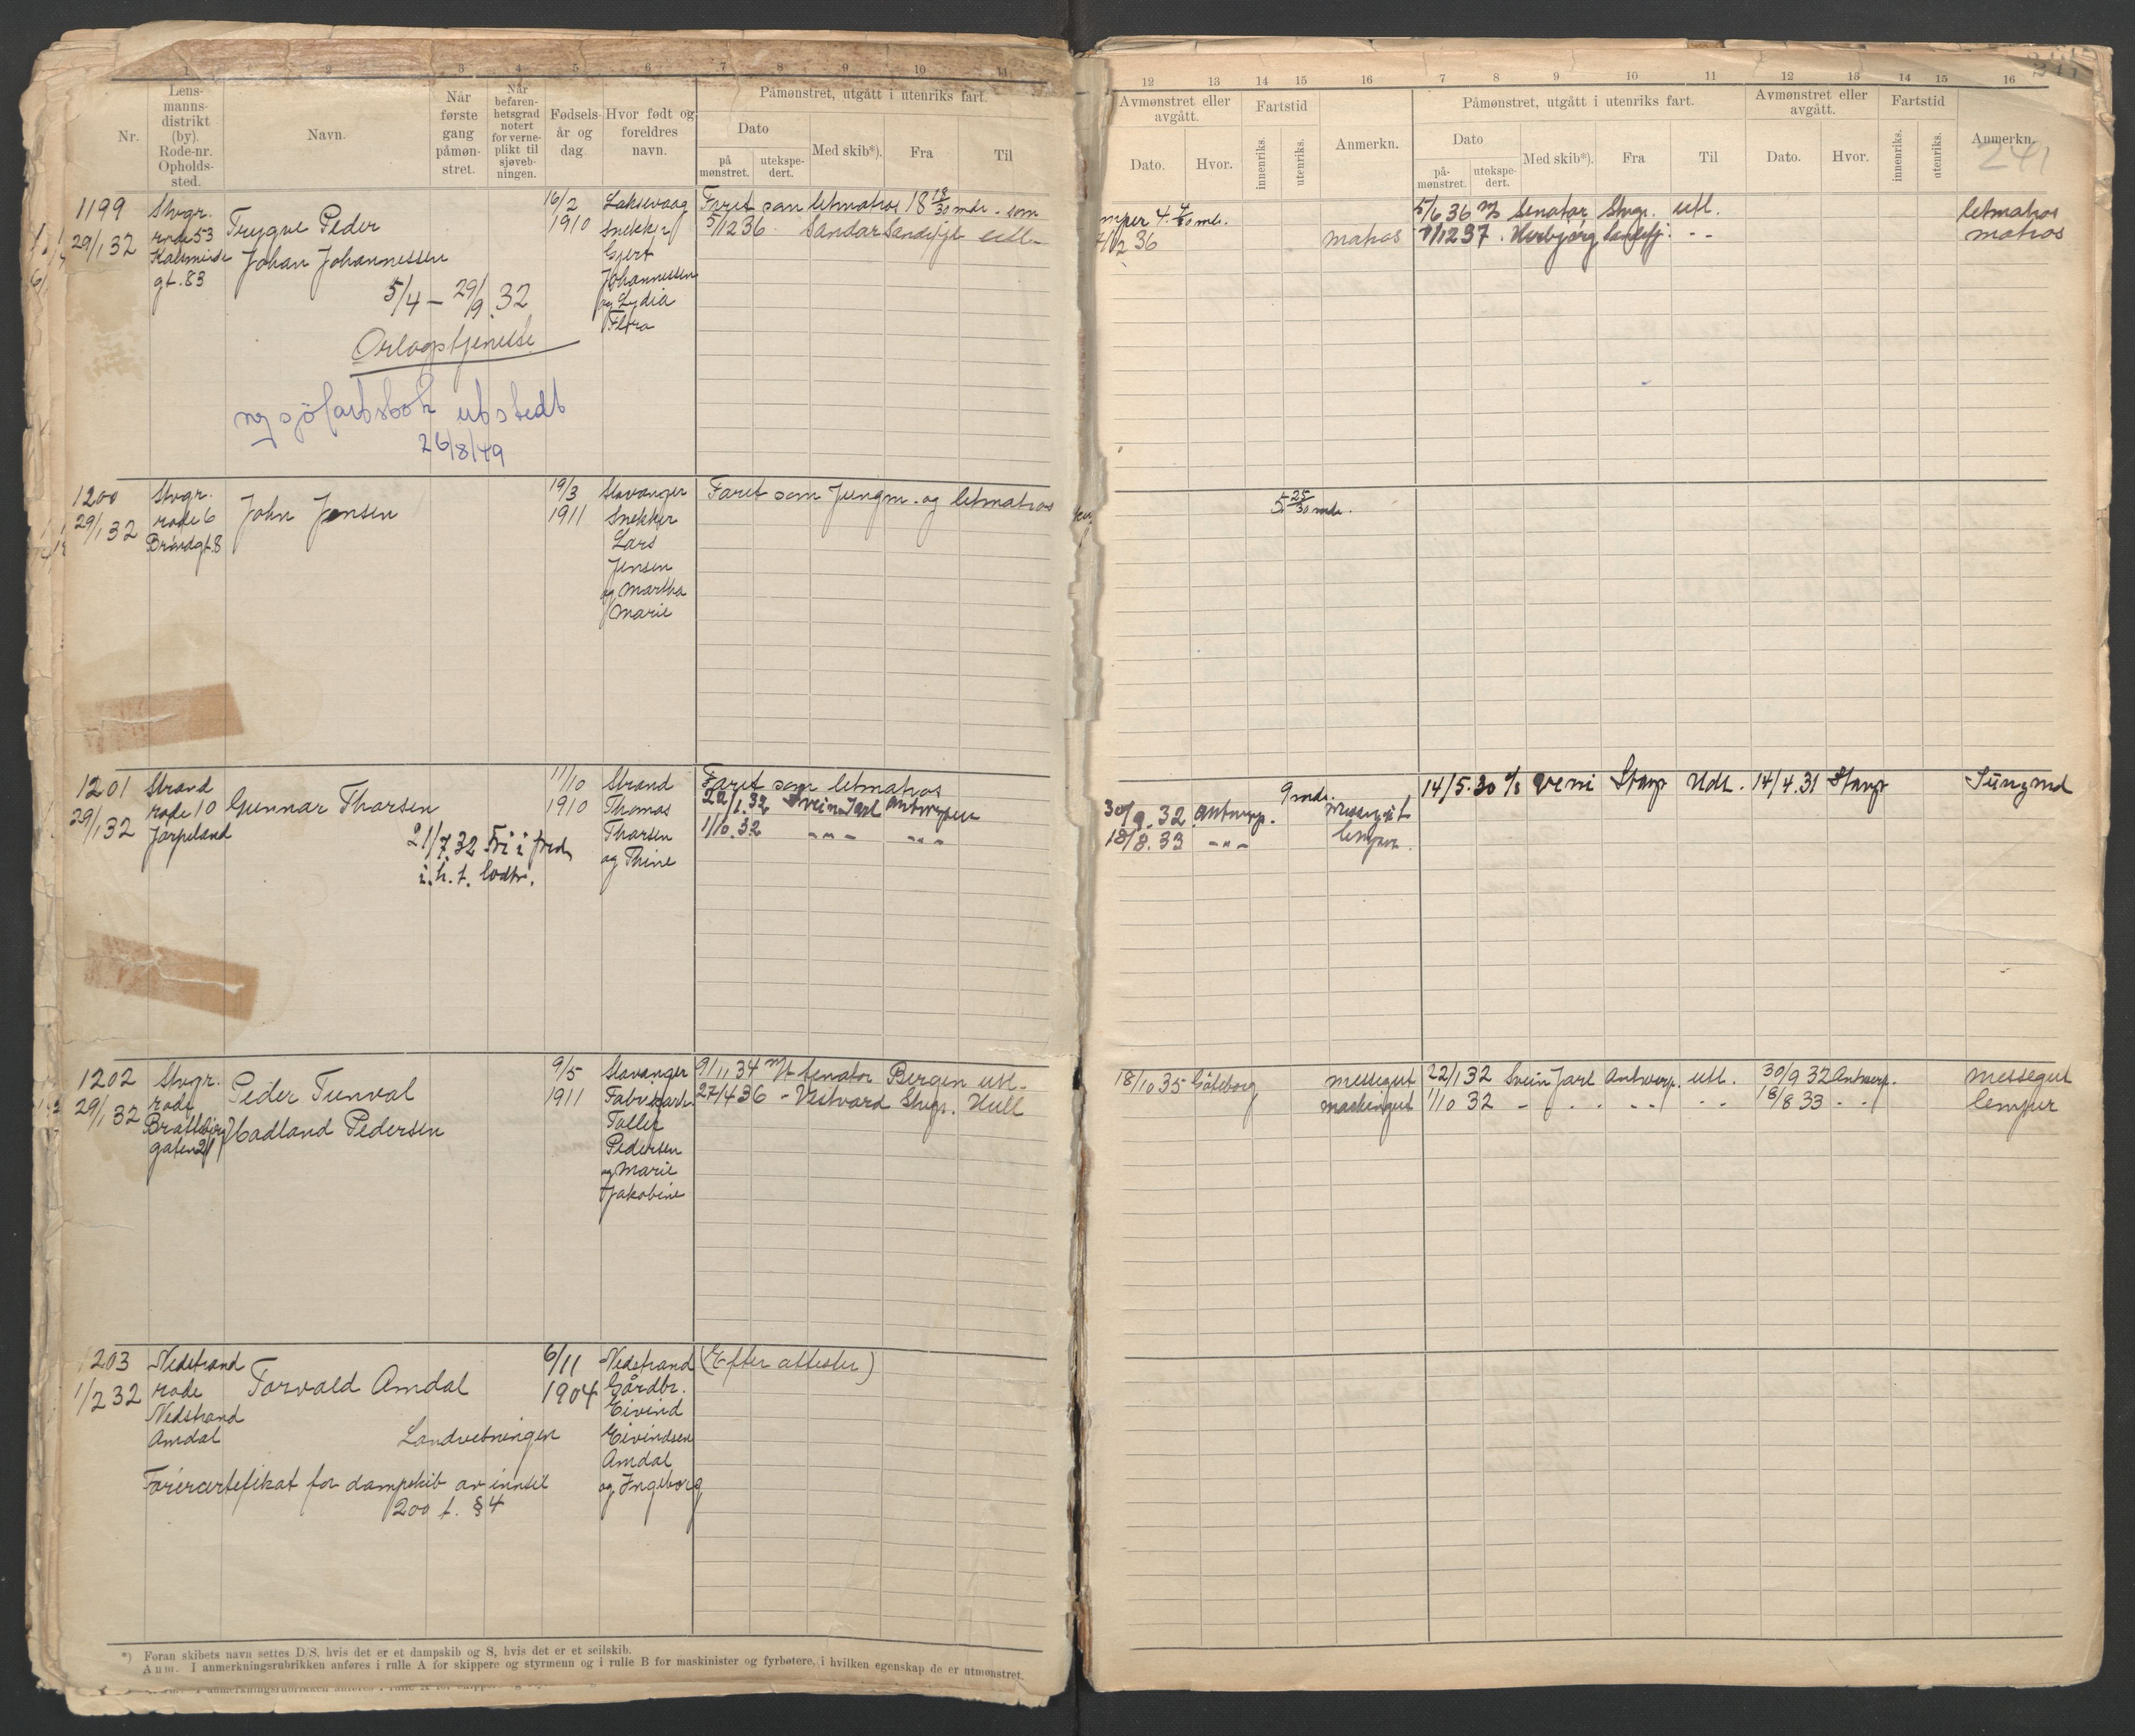 1 2 3 4 5 6 7 8 9 10 11
Nr.
Lens-
manns-
distrikt
(by).
Rode-nr.
Opholds-
sted.
Navn.
Når
første
gang
påmøn-
stret.
Når
befaren-
hetsgrad
notert
for verne-
plikt til
sjøveb-
ningen.
Fødsels-
år og
dag.
Hvor født og
foreldres
navn.
Påmønstret, utgått i utenriks fart.
Dato
på
mønstret.
utekspe-
dert.
Med skib*).
Fra
Til
1199
29/1 32
Stvgr.
rode 53
gt. 83
Trygve Peder
Johan Johannessen
5/4 – 29/9. 32
Orlogstjeneste
ny sjöfartsbok utstedt
26/8/49
16/2
1910
Laksevaag
Snekker
Gjert
Johannessen
og Lydia
Flora
Faret som letmatros 18 18/30 mdr. som
5/12 36 Sandar Sandefj. utl.
1200
29/1 32
Stvgr.
rode 6
John Jensen
19/3
1911
Stavanger
Snekker
Lars
Jensen
og Martha
Marie
Faret som Jungm. og letmatros
1201
29/1 32
Strand
rode 10
Jørpeland
Gunnar Thorsen
21/7. 32 Fri i fred
11/10
1910
Strand
Thomas
Thorsen
og Thine
Faret som letmatros
22/1. 32 Svein Jarl Antwerpen
1/10. 32 - " - - " -
1202
29/1 32
Stvgr.
rode
gaten 21
Peder Tunval
Hadland Pedersen
9/5
1911
Stavanger
Fabrikarb.
Toller
Pedersen
og Marie
Jakobine
9/11 34 M/t Senator Bergen utl.
27/4 36 - Vestvard Stvgr. Hull
1203
1/2 32
Nedstrand
rode
Nedstrand
Amdal
Torvald Amdal
Landvebningen
Førercertefikat for dampskib av inntil
200 t. § 4
6/11
1904
Nedstrand
Gårdbr.
Eivind
Eivindsen
Amdal
og Ingeborg
(Efter attester)
*) Foran skibets navn settes D/S, hvis det er et dampskib og S, hvis det er et seilskib.
Anm. I anmerkningsrubrikken anføres i rulle A for skippere og styrmenn og i rulle B for maskinister og fyrbøtere, i hvilken egenskap de er utmønstret.
12 13 14 15 16 7 8 9 10 11 12 13 14 15 16
241
Avmønstret eller
avgått.
Dato.
Hvor.
Fartstid
innenriks.
utenriks.
Anmerkn.
Påmønstret, utgått i utenriks fart.
Dato
på-
mønstret.
utekspe-
dert.
Med skib*).
Fra
Til
Avmønstret eller
avgått.
Dato.
Hvor.
Fartstid
innenriks.
utenriks.
Anmerkn.
5/6 36 Senator Stvgr. utl. letmatros
matros 1/12 37 . Herbjørg Sandefj. - - matros
5 25/30 mdr.
9 mdr. 14/5. 30 Stavgr Udl. 14/4. 31 Stavgr
30/9. 32 Antwerp. Messegut
18/8. 33 - " - lemper.
18/10 35 Göteborg messegut 22/1 32 Svein Jarl Antwerp. utl. 30/9 32 Antwerp. messegut
maskingut 1/10 32 - . . - - - - 18/8 33 - - lemper